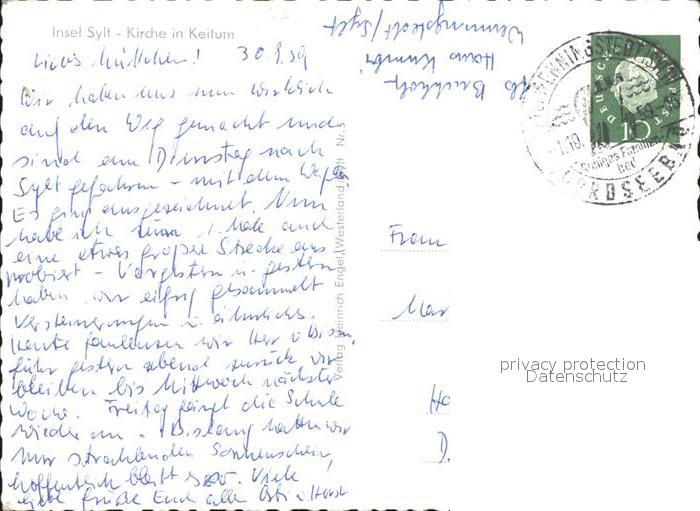 Insel Sylt - Kirche in Keitum
Liebes Muttchen! 30.9.59
Wir haben uns nun wirklich
auf den Weg gemacht und
sind am Dienstag nach
Sylt gefahren - mit dem Wagen
Es ging ausgezeichnet. Nun
habe ich zum 1. Male auch
eine etwas große Strecke aus
probiert - Vorgestern u. gestern
haben wir eifrig gesammelt
Versteinerungen u. ähnliches.
Heute faulenzen wir Herr
fuhr gestern abend zurück wir
bleiben bis Mittwoch nächster
Woche. Freitag fängt die Schule
wieder an. Bislang hatten wir
nur strahlenden Sonnenschein,
hoffentlich bleibt es so. Viele
liebe Grüße Euch allen
Buchholz
Haus
Wenningstedt/Sylt
Verlag Heinrich Engel, Westerland/Sylt Nr.
WENNINGSTEDT (SYLT)
-1.10.59-18
NORDSEEBAD
DEUTSCHE
POST
10
Frau
Mar
Ha
D.
privacy protection
Datenschutz